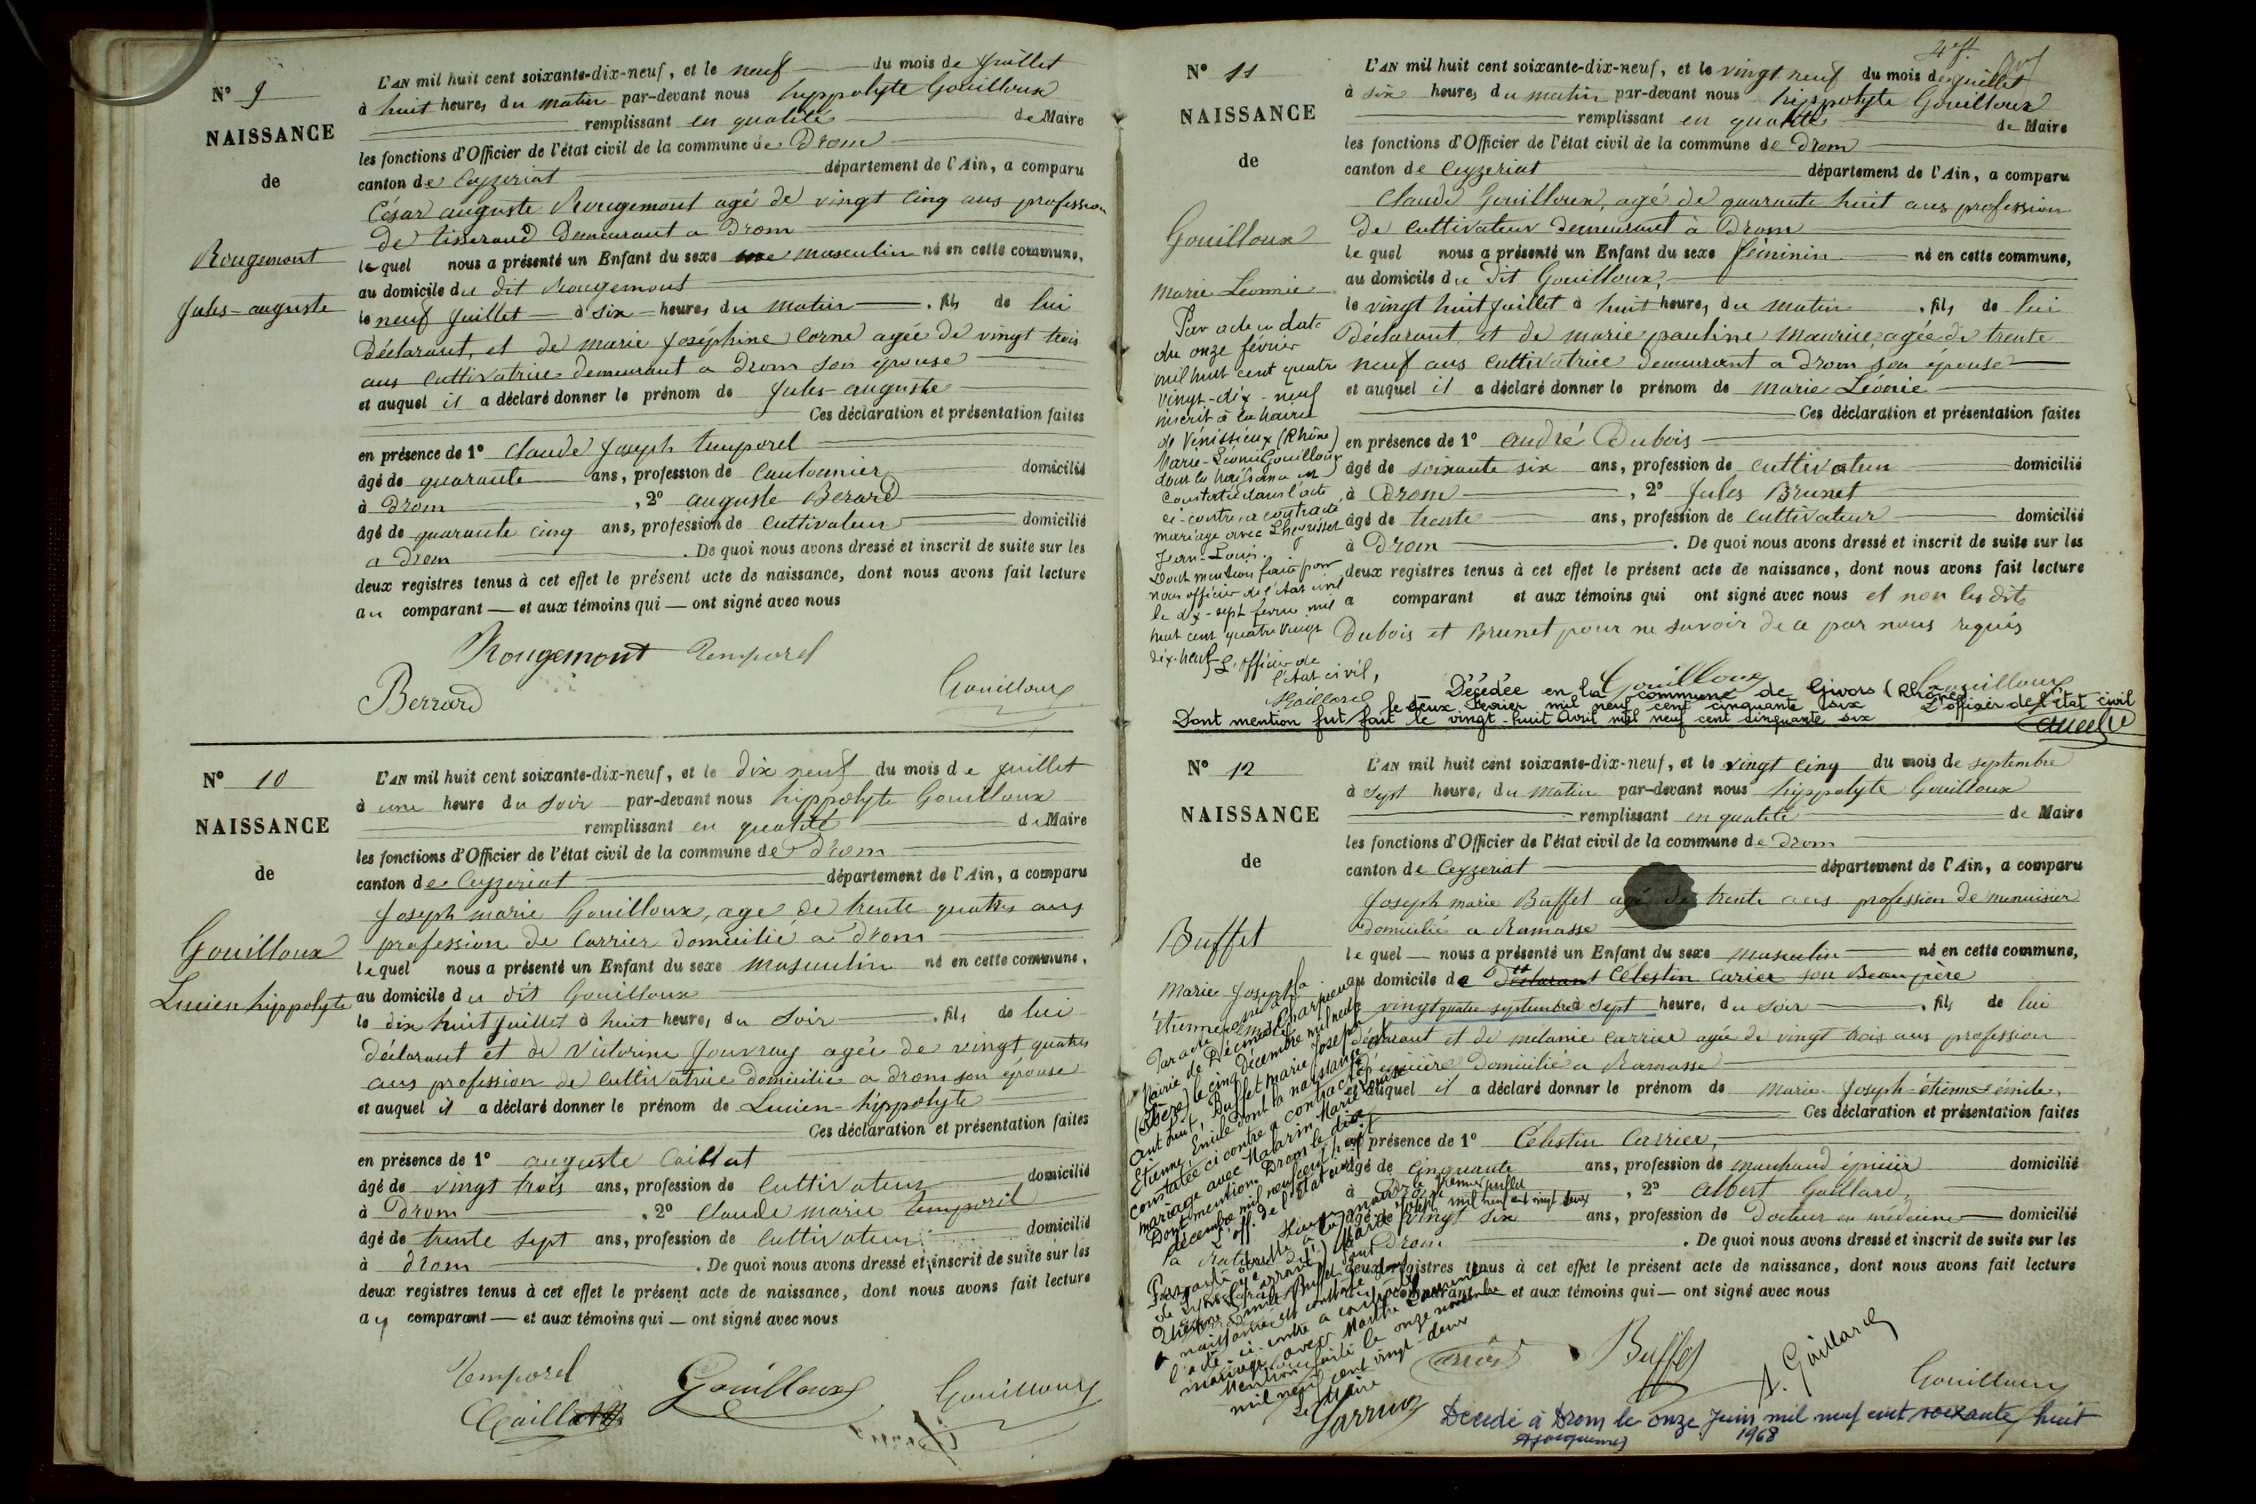 N° 9
NAISSANCE
de
Rougemont
Jules-auguste
L'AN mil huit cent soixante-dix-neuf, et le neuf du mois de juillet
à huit heures du matin par-devant nous hyppolyte Gouilloux
remplissant en qualité de Maire
les fonctions d'Officier de l'état civil de la commune de Drom
canton de Ceyzeriat département de l'Ain, a comparu
César auguste Rougemont agé de vingt cinq ans profession
de tisserand demeurant a Drom
le quel nous a présenté un Enfant du sexe masculin né en cette commune,
au domicile du dit Rougemont
le neuf juillet à six heures du matin. fils de lui
Déclarant, et de marie joséphine Corne agée de vingt trois
ans cultivatrice demeurant a Drom son épouse
et auquel il a déclaré donner le prénom de Jules-auguste
Ces déclaration et présentation faites
en présence de 1° Claude joseph temporel
âgé de quarante ans, profession de Cantonnier domicilié
à Drom, 2° auguste Berard
âgé de quarante cinq ans, profession de cultivateur domicilié
a Drom. De quoi nous avons dressé et inscrit de suite sur les
deux registres tenus à cet effet le présent acte de naissance, dont nous avons fait lecture
au comparant — et aux témoins qui — ont signé avec nous
Rougemont Temporel
Berrard Gouilloux
N° 10
NAISSANCE
de
Gouilloux
Lucien hippolyte
L'AN mil huit cent soixante-dix-neuf, et le dix neuf du mois de juillet
à une heure du soir par-devant nous hippolyte Gouilloux
remplissant en qualité de Maire
les fonctions d'Officier de l'état civil de la commune de Drom
canton de Ceyzeriat département de l'Ain, a comparu
Joseph marie Gouilloux, age de trente quatre ans
profession de Carrier domicilié a drom
le quel nous a présenté un Enfant du sexe masculin né en cette commune,
au domicile du dit Gouilloux
le dix huit juillet à huit heures du soir. fils de lui
déclarant et de Victorine Jouvray agée de vingt quatre
ans profession de cultivatrice domiciliée a drom son épouse
et auquel il a déclaré donner le prénom de Lucien-hippolyte
Ces déclaration et présentation faites
en présence de 1° auguste Caillat
âgé de vingt trois ans, profession de Cultivateur domicilié
à Drom, 2° Claude marie temporel
âgé de trente sept ans, profession de Cultivateur domicilié
à drom. De quoi nous avons dressé et inscrit de suite sur les
deux registres tenus à cet effet le présent acte de naissance, dont nous avons fait lecture
au comparant — et aux témoins qui — ont signé avec nous
Temporel Gouilloux Gouilloux
Caillat
N° 11
NAISSANCE
de
Gouilloux
Marie Léonnie
Par acte en date
du onze février
mil huit cent quatre
vingt-dix-neuf
inscrit à la mairie
de Vénissieux (Rhône)
Marie-Léonie Gouilloux
dont la naissance est
constatée dans l'acte
ci-contre, a contracté
mariage avec Lheurisset
Jean-Louis.
Dont mention faite par
nous officier de l'état civil
le dix-sept février mil
huit cent quatre vingt
dix-neuf L'officier de
l'état civil,
L'AN mil huit cent soixante-dix-neuf, et le vingt neuf du mois de juillet
à six heures du matin par-devant nous hippolyte Gouilloux
remplissant en qualité de Maire
les fonctions d'Officier de l'état civil de la commune de Drom
canton de Ceyzeriat département de l'Ain, a comparu
Claude Gouilloux, agé de quarante huit ans profession
De Cultivateur demeurant à Drom
le quel nous a présenté un Enfant du sexe féminin né en cette commune,
au domicile du dit Gouilloux,
le vingt huit juillet à huit heures du matin. fils de lui
déclarant et de marie pauline maurice agée de trente
neuf ans cultivatrice demeurant a drom son épouse
et auquel il a déclaré donner le prénom de Marie Léonie
Ces déclaration et présentation faites
en présence de 1° andré Dubois
âgé de soixante six ans, profession de cultivateur domicilié
à Drom, 2° Jules Brunet
âgé de trente ans, profession de cultivateur domicilié
à Drom. De quoi nous avons dressé et inscrit de suite sur les
deux registres tenus à cet effet le présent acte de naissance, dont nous avons fait lecture
a comparant et aux témoins qui ont signé avec nous et non les dits
Dubois et Brunet pour ne savoir de ce par nous requis
Gouilloux Gouilloux
Décédée en la commune de Givors (Rhône)
le deux Février mil neuf cent cinquante six L'officier de l'état civil
Dont mention fut fait le vingt-huit Avril mil neuf cent cinquante six
N° 12
NAISSANCE
de
Buffet
Marie Joseph
étienne émile
Par acte
Mairie de Décines Charpieu
(Isère) le cinq décembre mil neuf
cent huit, Buffet Marie Joseph
Etienne Emile dont la naissance est
constatée ci contre a contracté
mariage avec Mabarin Marie Louise
Dont mention. Drom le dix
décembre mil neuf cent huit
L'off. de l'état civil
naissance est constatée
l'acte ci-contre a contracté
mariage avec
Mention faite le onze novembre
mil neuf cent vingt-deux
Le Maire
L'AN mil huit cent soixante-dix-neuf, et le vingt cinq du mois de septembre
à sept heures du matin par-devant nous hippolyte Gouilloux
remplissant en qualité de Maire
les fonctions d'Officier de l'état civil de la commune de Drom
canton de Ceyzeriat département de l'Ain, a comparu
Joseph marie Buffet agé de trente ans profession de menuisier
domicilié a Ramasse
le quel — nous a présenté un Enfant du sexe masculin né en cette commune,
au domicile de Célestin Carier son Beau père
vingt quatre septembre à sept heures du soir. fils de lui
déclarant et de mélanie Carrier agée de vingt trois ans profession
d'épicière Domicilié a Ramasse
et auquel il a déclaré donner le prénom de Marie-Joseph-étienne-émile
Ces déclaration et présentation faites
en présence de 1° Célestin Carrier,
âgé de cinquante ans, profession de marchand épicier domicilié
à Drom, 2° Albert Gaillard,
âgé de vingt six ans, profession de Docteur en médecine domicilié
Drom. De quoi nous avons dressé et inscrit de suite sur les
deux registres tenus à cet effet le présent acte de naissance, dont nous avons fait lecture
comparant et aux témoins qui — ont signé avec nous
Carrier Buffet A. Gaillard Gouilloux
Décédé à Drom le onze Juin mil neuf cent soixante huit
1968